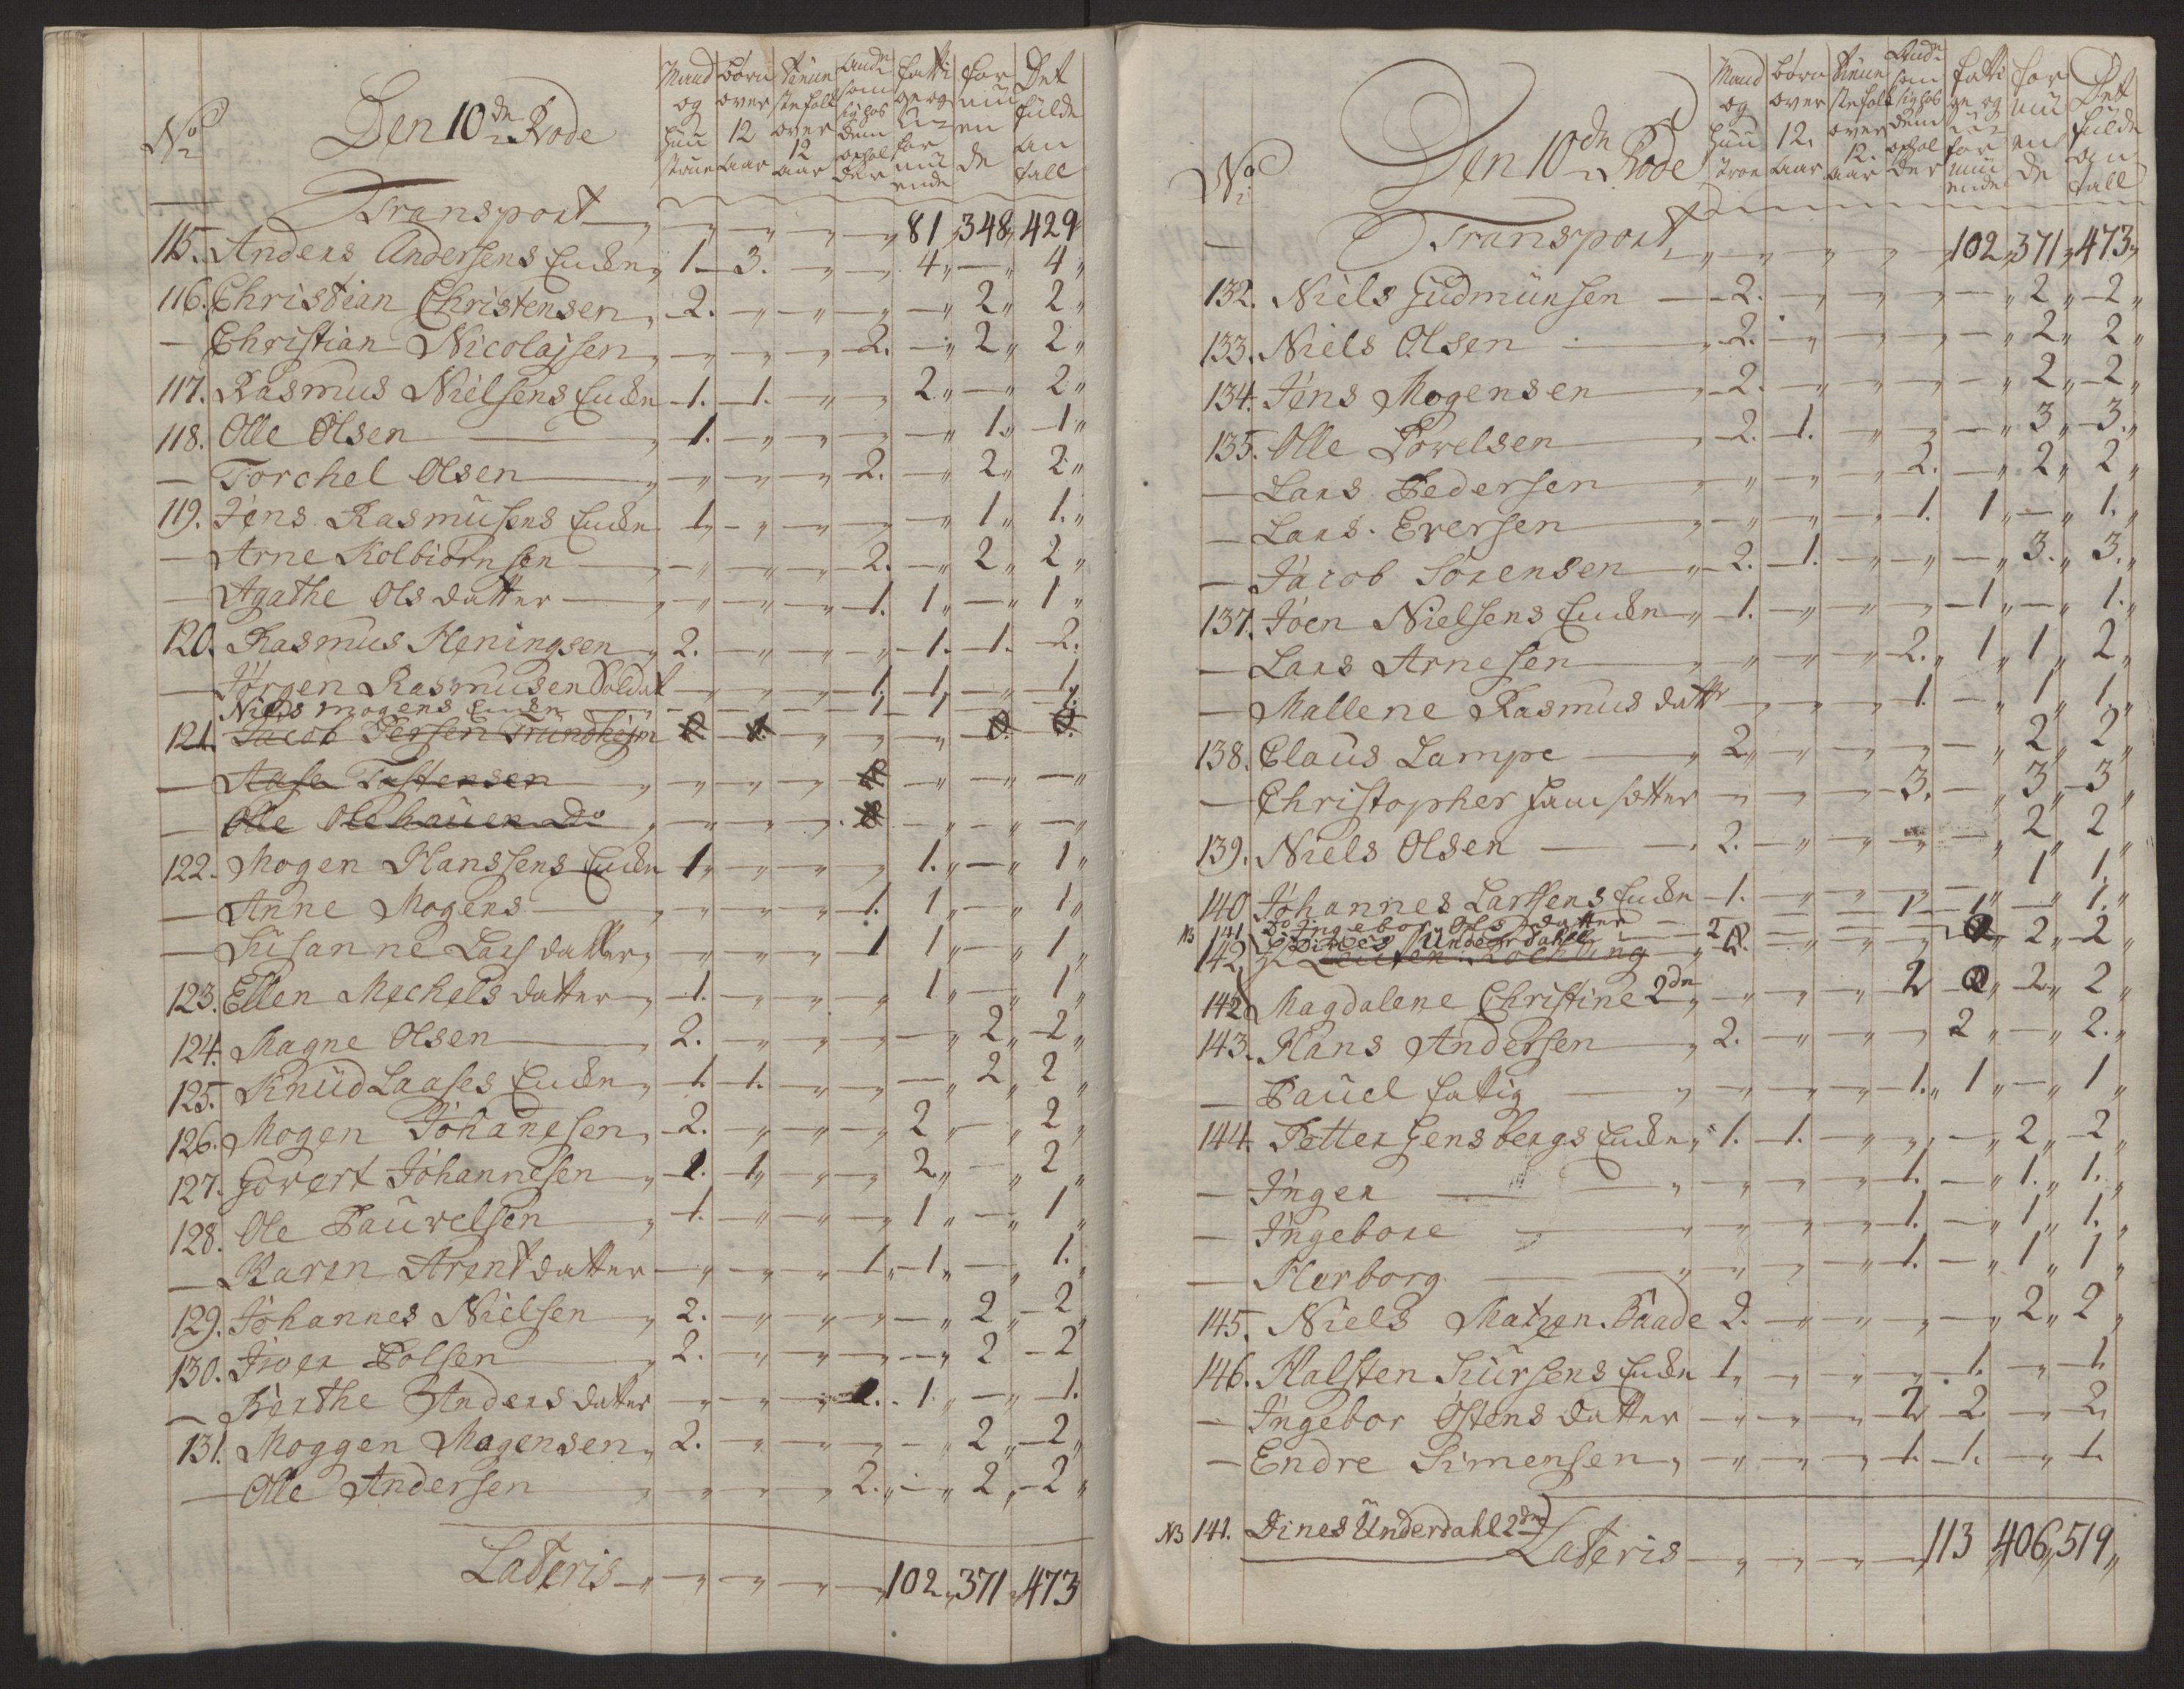 No Den 10de Rode
Mand og Hustrue
børn over 12 aar
tienne ste folk over 12 aar
Andre som sig hos dem ophol der
fatti ge og for mu ende
for mu en de
Det fulde an tall
Transport „ — „ — „ — „ — „ 81 „ 348 „ 429
115. Anders Andersens Enken „ 1. 3. „ „ 4 „ — „ 4 „
116. Christian Christensen „ 2. „ „ „ — „ 2 „ 2 „
— Christian Nicolajsen „ „ „ „ 2. — „ 2 „ 2 „
117. Rasmus Nielsens Enken 1. 1. „ „ 2 „ — „ 2 „
118. Olle Olsen — „ 1. „ „ „ — „ 1 „ 1 „
— Torchel Olsen — „ „ „ „ 2. — „ 2 „ 2 „
119. Jens Rasmusens Enken 1 „ „ „ „ — „ 1 „ 1. „
— Arne Kolbiørnsen — „ „ „ „ 2. — „ 2 „ 2 „
— Agathe Ols datter — „ „ „ „ 1. 1 „ — „ 1 „
120. Rasmus Heningsen „ 2. „ „ „ 1. 1. 2.
— Jørgen Rasmusen Soldat „ „ „ 1. 1 „ — 1 „
Niels Mogens Enken — — — 1 1 — 1.
121. Jacob Persen Trundhejm
— Aase Tostensen „ „ „ „ — „ — „ — „
— Olle Olehauen Do „ „ „ „ — „ — „ — „
122. Mogen Hanssens Enken 1 „ „ „ „ 1. „ — „ 1 „
— Anne Mogens — „ „ „ „ 1. 1 „ — „ 1 „
— Susanne Lars datter „ „ „ „ 1 1 „ — „ 1 „
123. Ellen Mechels datter „ 1. „ „ „ 1 „ — „ 1 „
124. Magne Olsen — „ 2. „ „ „ — „ 2 „ 2 „
125. Knud Laases Enken „ 1. 1. „ „ — „ 2 „ 2 „
126. Mogen Johanesen „ 2. „ „ „ 2 „ — „ 2 „
127. Govert Johannesen „ 1. 1 „ „ „ 2 „ — „ 2 „
128. Ole Pauvelsen — „ 1. „ „ „ 1 „ — „ 1 „
— Karen Arent datter „ „ „ 1 „ 1 „ — „ 1. „
129. Johannes Nielsen „ 2. „ „ „ — „ 2 „ 2 „
130. Iver Polsen — „ 2. „ „ „ — „ 2 — 2
— Berthe Anders datter „ „ „ 1. 1. — „ 1.
131. Moggen Magensen „ 2. „ „ „ — „ 2 „ 2 „
— Olle Andersen „ „ „ „ 2. „ — „ 2 „ 2 „
Lateris „ „ „ „ „ 102 „ 371 „ 473
No Den 10de Rode
Mand og Huus troe
børn over 12. aar
tienne ste folk over 12. aar
Andre som sig hos dem ophol der
fatti ge og for muu ende
for mu en de
Det fulde an tall
— Transport „ „ „ „ „ 102 „ 371 „ 473 „
132. Niels Gudmunsen — 2. „ „ „ — „ 2 „ 2 „
133. Niels Olsen — „ 2. „ „ „ — „ 2 „ 2 „
134. Jens Mogensen — „ 2. „ „ „ — „ 2 „ 2 „
135. Olle Povelsen — „ 2. 1. „ „ — „ 3 „ 3. „
— Lars Pedersen — „ „ „ „ 2. — „ 2 „ 2 „
— Lars. Eversen — „ „ „ „ 1. 1 „ — „ 1. „
— Jacob Sørensen — „ 2. 1. „ „ — „ 3. „ 3. „
137. Joen Nielsens Enken „ 1. „ „ „ 1 „ — „ 1. „
— Lars Arnesen — „ „ „ „ 2. „ 1 „ 1 „ 2 „
— Mallene Rasmus datter „ „ „ 1. — „ 1 „ 1. „
138. Claus Lampe — „ 2 „ „ „ „ — „ 2 „ 2 „
— Christopher „ „ „ 3. — „ 3 „ 3 „
139. Niels Olsen — „ 2. „ „ „ — „ 2 „ 2 „
140 Johannes Larssens Enken 1. „ „ „ — „ 1 1.
Do Ingebor Ols datter — — — 1 1 — „ 1. „
NB 141 Dines Underdahl 2
142 Leuten: Rochling „ 2. „ „ „ 2 „ 2 „
142 Magdalene Christine 2dn „ „ „ „ 2 „ 2 „ 2 „
143. Hans Andersen — „ 2. „ „ „ 2 „ — „ 2. „
— Pauel fattig — „ „ „ „ 1. „ 1 „ — „ 1 „
144. Petter Jensbergs Enken „ 1. 1. „ „ — „ 2 „ 2 „
— Inger — „ „ „ „ 1. — „ 1. „ 1. „
— Ingebore — „ „ „ „ 1. — „ 1 „ 1. „
— Herborg — „ „ „ „ 1. — „ 1 „ 1 „
145. Niels Matzen. Baade 2. „ „ „ „ 2 „ 2 „
146. Halsten Siursens Enken 1 „ „ „ „ 1. „ 1.
— Ingebor Ostens datter „ „ „ 2 2 — „ 2 „
— Endre Simensen „ „ „ „ 1. 1. — „ 1.
NB 141. Dines Underdahl 2dn
Lateris „ „ „ „ 113 „ 406 „ 519 „